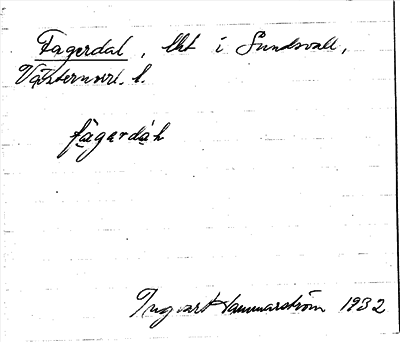 Fagerdal, lht i Sundsvall,
Västernorrl. l.
fàgərdá̀l
Ingvart Hammarström 1932